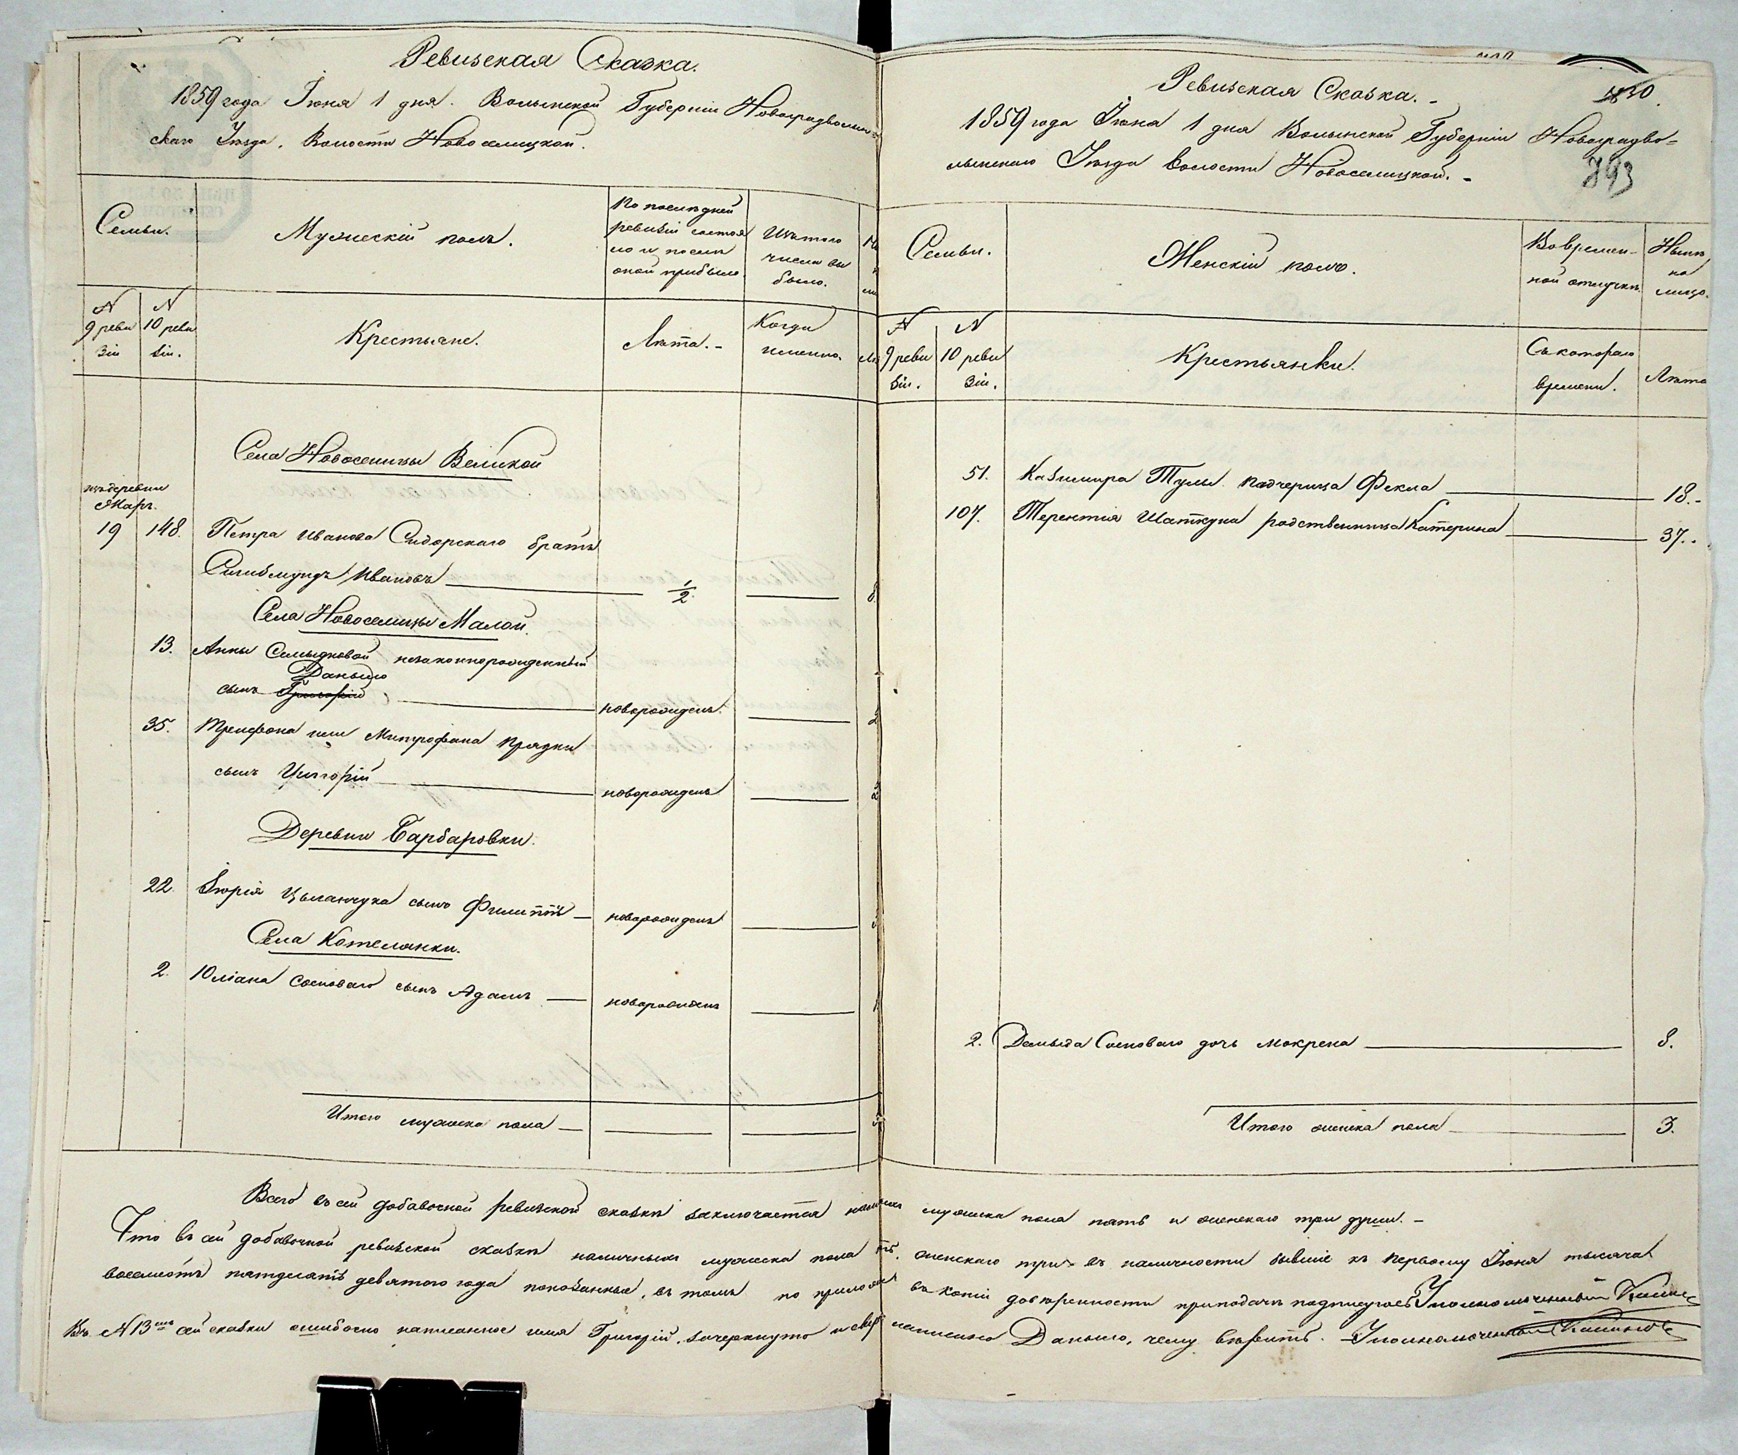 Ревизская Сказка.
1859 года Іюня 1 дня. Волынской Губерніи Новоградволын-
скаго Уѣзда, Волости Новоселицкой.
Семьи.
Мужескій полъ.
По послѣдней
ревизіи состоя
ло и послѣ
оной прибыло
Изъ того
числа вы
было.
N
9 реви
зіи
N
10 реви
зіи.
Крестьяне.
Лѣта.
Когда
именно.
Села Новоселицы Великой
изъ деревни
19 148. Петра Иванова Сидорскаго братъ
Сигизмундъ Ивановъ 1/2
Села Новоселицы Малой.
13. Анны незаконнорожденный
Данило
сынъ Григорій новорожденъ.
35. Трифона или Митрофана Прядки
сынъ Григорій новорожденъ
Деревни Барбаровки.
22. Юрія Цыганчука сынъ Филиппъ новорожденъ
Села Котелянки.
2. Юліана Сосноваго сынъ Адамъ новорожденъ
Итого мужеска пола
Ревизская Сказка.
1859 года Іюня 1 дня Волынской Губерніи Новоградво-
лынскаго Уѣзда волости Новоселицкой.
793
Семьи.
Женскій полъ.
Во времен-
ной отлучкѣ.
Нынѣ
на
лицо.
N
9 реви
зіи.
N
10 реви
зіи.
Крестьянки.
Съ котораго
времени.
Лѣта
51. Казимира Тумы падчерица Фекла 18.
107. Терентія Шаткуна родственница Катерина 37.
2. Демьяна Сосноваго дочь Мокрена 8.
Итого женска пола 3.
Всего въ сей добавочной ревизской сказкѣ заключается мужеска пола пять и женскаго три души.
Что въ сей добавочной ревизской сказкѣ наличныхъ мужеска пола женскаго три въ наличности бывшіе къ первому Іюня тысяча
восемьсотъ пятьдесятъ девятого года показаны, въ томъ по въ копіи довѣренности при подачѣ подписуюсь Уполномоченный
Въ N 13 сей сказки ошибочно написанное имя Григорій, зачеркнуто и написано Данило, чему вѣрить. Уполномоченный